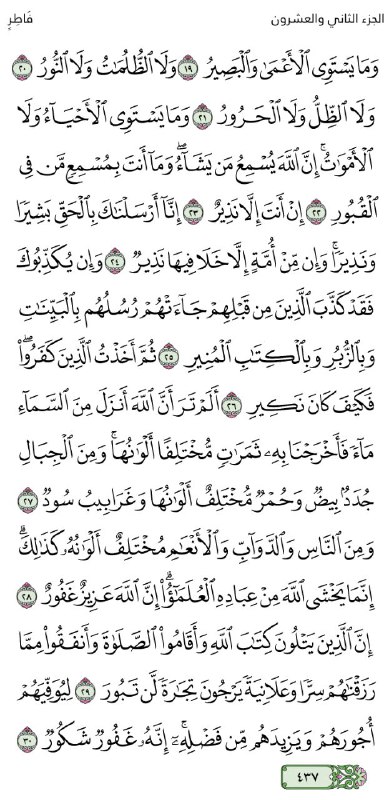 الجزء الثاني والعشرون فَاطِرٍ
وَمَا يَسْتَوِي الْأَعْمَىٰ وَالْبَصِيرُ ١٩ وَلَا الظُّلُمَاتُ وَلَا النُّورُ ٢٠
وَلَا الظِّلُّ وَلَا الْحَرُورُ ٢١ وَمَا يَسْتَوِي الْأَحْيَاءُ وَلَا
الْأَمْوَاتُ ۚ إِنَّ اللَّهَ يُسْمِعُ مَن يَشَاءُ ۖ وَمَا أَنتَ بِمُسْمِعٍ مَّن فِي
الْقُبُورِ ٢٢ إِنْ أَنتَ إِلَّا نَذِيرٌ ٢٣ إِنَّا أَرْسَلْنَاكَ بِالْحَقِّ بَشِيرًا
وَنَذِيرًا ۚ وَإِن مِّنْ أُمَّةٍ إِلَّا خَلَا فِيهَا نَذِيرٌ ٢٤ وَإِن يُكَذِّبُوكَ
فَقَدْ كَذَّبَ الَّذِينَ مِن قَبْلِهِمْ جَاءَتْهُمْ رُسُلُهُم بِالْبَيِّنَاتِ
وَبِالزُّبُرِ وَبِالْكِتَابِ الْمُنِيرِ ٢٥ ثُمَّ أَخَذْتُ الَّذِينَ كَفَرُوا ۖ
فَكَيْفَ كَانَ نَكِيرِ ٢٦ أَلَمْ تَرَ أَنَّ اللَّهَ أَنزَلَ مِنَ السَّمَاءِ
مَاءً فَأَخْرَجْنَا بِهِ ثَمَرَاتٍ مُّخْتَلِفًا أَلْوَانُهَا ۚ وَمِنَ الْجِبَالِ
جُدَدٌ بِيضٌ وَحُمْرٌ مُّخْتَلِفٌ أَلْوَانُهَا وَغَرَابِيبُ سُودٌ ٢٧
وَمِنَ النَّاسِ وَالدَّوَابِّ وَالْأَنْعَامِ مُخْتَلِفٌ أَلْوَانُهُ كَذَٰلِكَ ۗ
إِنَّمَا يَخْشَى اللَّهَ مِنْ عِبَادِهِ الْعُلَمَاءُ ۗ إِنَّ اللَّهَ عَزِيزٌ غَفُورٌ ٢٨
إِنَّ الَّذِينَ يَتْلُونَ كِتَابَ اللَّهِ وَأَقَامُوا الصَّلَاةَ وَأَنفَقُوا مِمَّا
رَزَقْنَاهُمْ سِرًّا وَعَلَانِيَةً يَرْجُونَ تِجَارَةً لَّن تَبُورَ ٢٩ لِيُوَفِّيَهُمْ
أُجُورَهُمْ وَيَزِيدَهُم مِّن فَضْلِهِ ۚ إِنَّهُ غَفُورٌ شَكُورٌ ٣٠
٤٣٧